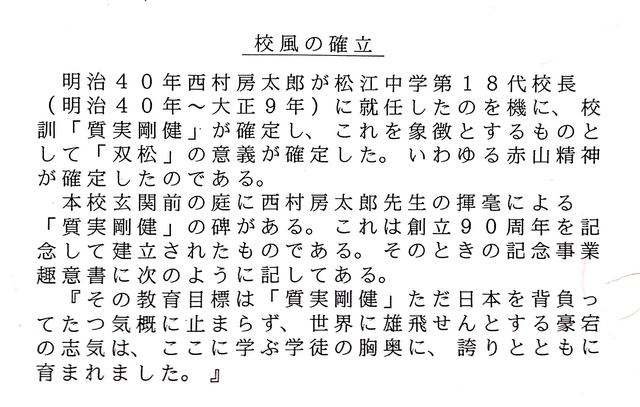 校風の確立
明治４０年西村房太郎が松江中学第１８代校長
（明治４０年～大正９年）に就任したのを機に、校
訓「質実剛健」が確定し、これを象徴とするものと
して「双松」の意義が確定した。いわゆる赤山精神
が確定したのである。
本校玄関前の庭に西村房太郎先生の揮毫による
「質実剛健」の碑がある。これは創立９０周年を記
念して建立されたものである。そのときの記念事業
趣意書に次のように記してある。
『その教育目標は「質実剛健」ただ日本を背負っ
てたつ気概に止まらず、世界に雄飛せんとする豪宕
の志気は、ここに学ぶ学徒の胸奥に、誇りとともに
育まれました。』